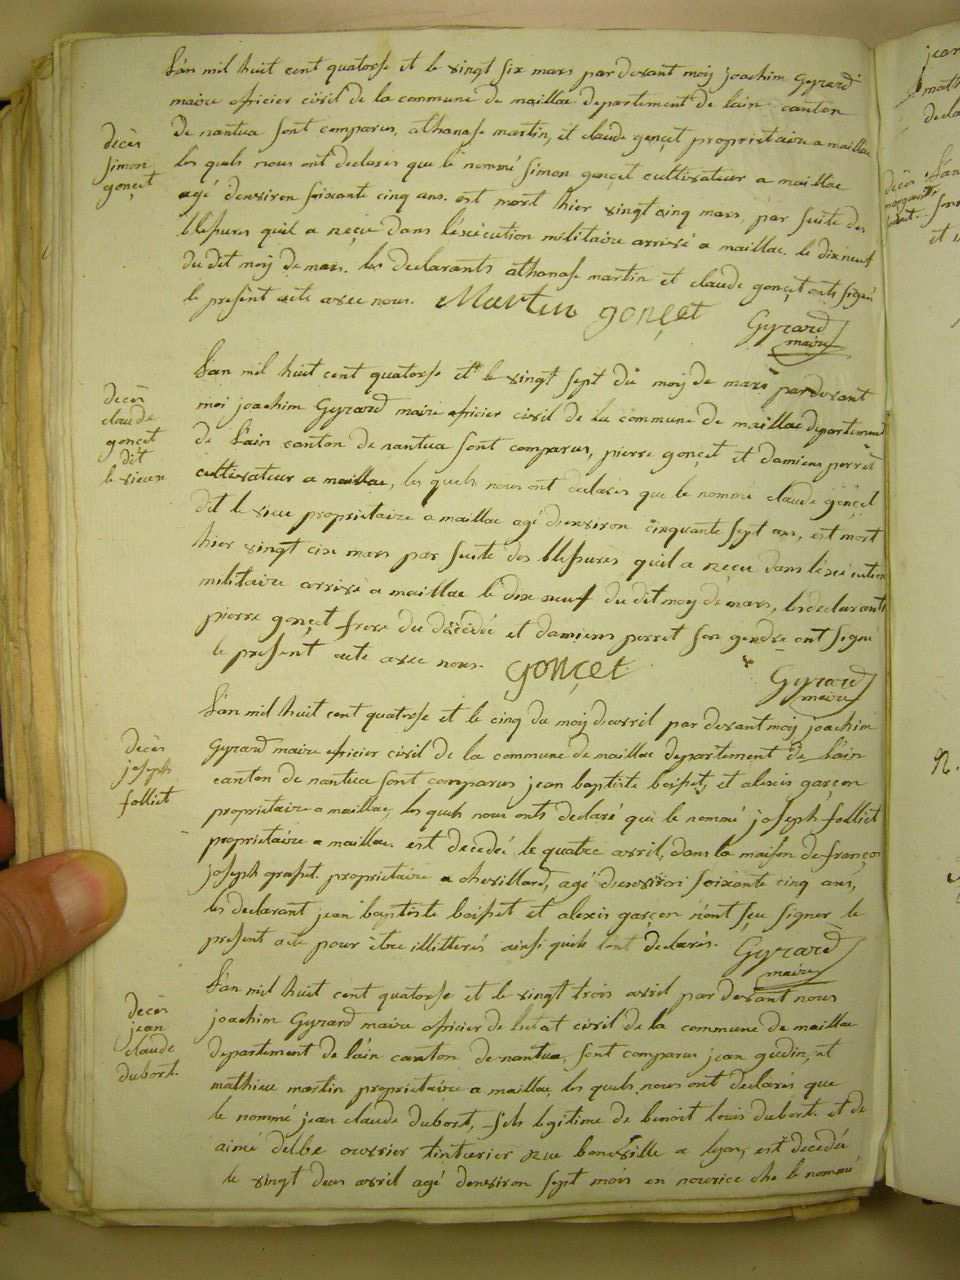 L'an mil huit cent quatorse et le vingt six mars par devant moÿ joachim Gyrard
maire oficier civil de la commune de maillac departement de lain canton
décès
simon
gonçet
de nantua sont comparus, athanase martin, et claude gonçet propriétaire a maillac
les quels nous ont declarés que le nommé simon gonçet cultivateur a maillac
agé denviron soixante cinq ans. est mort hier vingt cinq mars, par suite des
blessures quil a reçue dans léxécution militaire arrivé a maillac. le dix neuf
du dit moÿ de mars. les declarants athanase martin et claude gonçet onts signé
le present acte avec nous. Martin gonçet
Gyrard
maire
L'an mil huit cent quatorse et le vingt sept du moÿ de mars par devant
décès
claude
gonçet
dit
le vieux
moi joachim Gyrard maire oficier civil de la commune de maillac departement
de l'ain canton de nantua sont comparus, pierre gonçet et damiens perret
cultivateur a maillac, les quels nous ont déclarés que le nommé claude gonçet
dit le vieu propriétaire a maillac agé denviron cinquante sept ans, est mort
hier vingt six mars par suite des blessures quil a reçue dans lexécution
militaire arrivé a maillac le dix neuf du dit moÿ de mars, les declarants
pierre gonçet frere du décédé et damiens perret son gendre ont signé
le présent acte avec nous. gonçet
Gyrard
maire
L'an mil huit cent quatorse et le cinq du moÿ davril par devant moÿ joachim
décès
joseph
folliet
Gyrard maire oficier civil de la commune de maillac departement de lain
canton de nantua sont comparus jean baptiste boisset, et alexis garçon
propriétaire a maillac, les quels nous onts declaré que le nommé joseph folliet
propriétaire a maillac. est decedé le quatre avril, dans la maison de françois
joseph grasset. propriétaire a chevillard, agé denviron soixante cinq ans,
les declarant jean baptiste boisset et alexis garçon n'ont sçu signer le
present acte pour être illitterés ainsi quils lont declarés. Gyrard
maire
L'an mil huit cent quatorse et le vingt trois avril par devant nous
décès
jean
claude
dubort.
joachim Gyrard maire oficier de letat civil de la commune de maillac
departement de lain canton de nantua, sont comparus jean gudin, et
mathieu martin propriétaire a maillac, les quels nous ont declarés que
le nommé jean claude dubort, fils legitime de benoit louis dubort. et de
aimé delbe ouvrier tinturier rue bonneville a lyon, est decedée
le vingt deux avril agé denviron sept mois en nourice ché le nommé